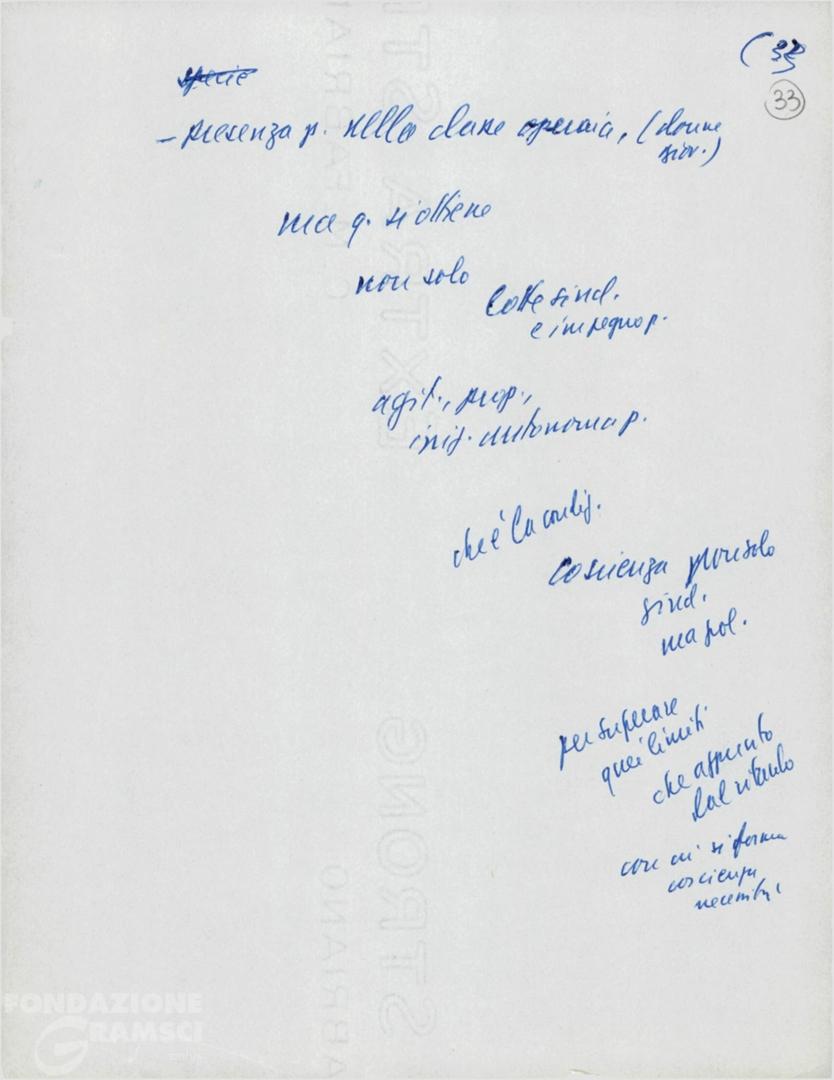 (32)
33
specie
- presenza p. nella classe operaia, (donne
giov.)
ma q. si ottiene
non solo
lotte sind.
e impegno p.
agit., prop.,
iniz. autonoma p.
che è la condiz.
coscienza non solo
sind.
ma pol.
per superare
quei limiti
che appunto
dal ritardo
con cui si forma
coscienza
necessità
FONDAZIONE
GRAMSCI
EXTRA STRONG
FABRIANO